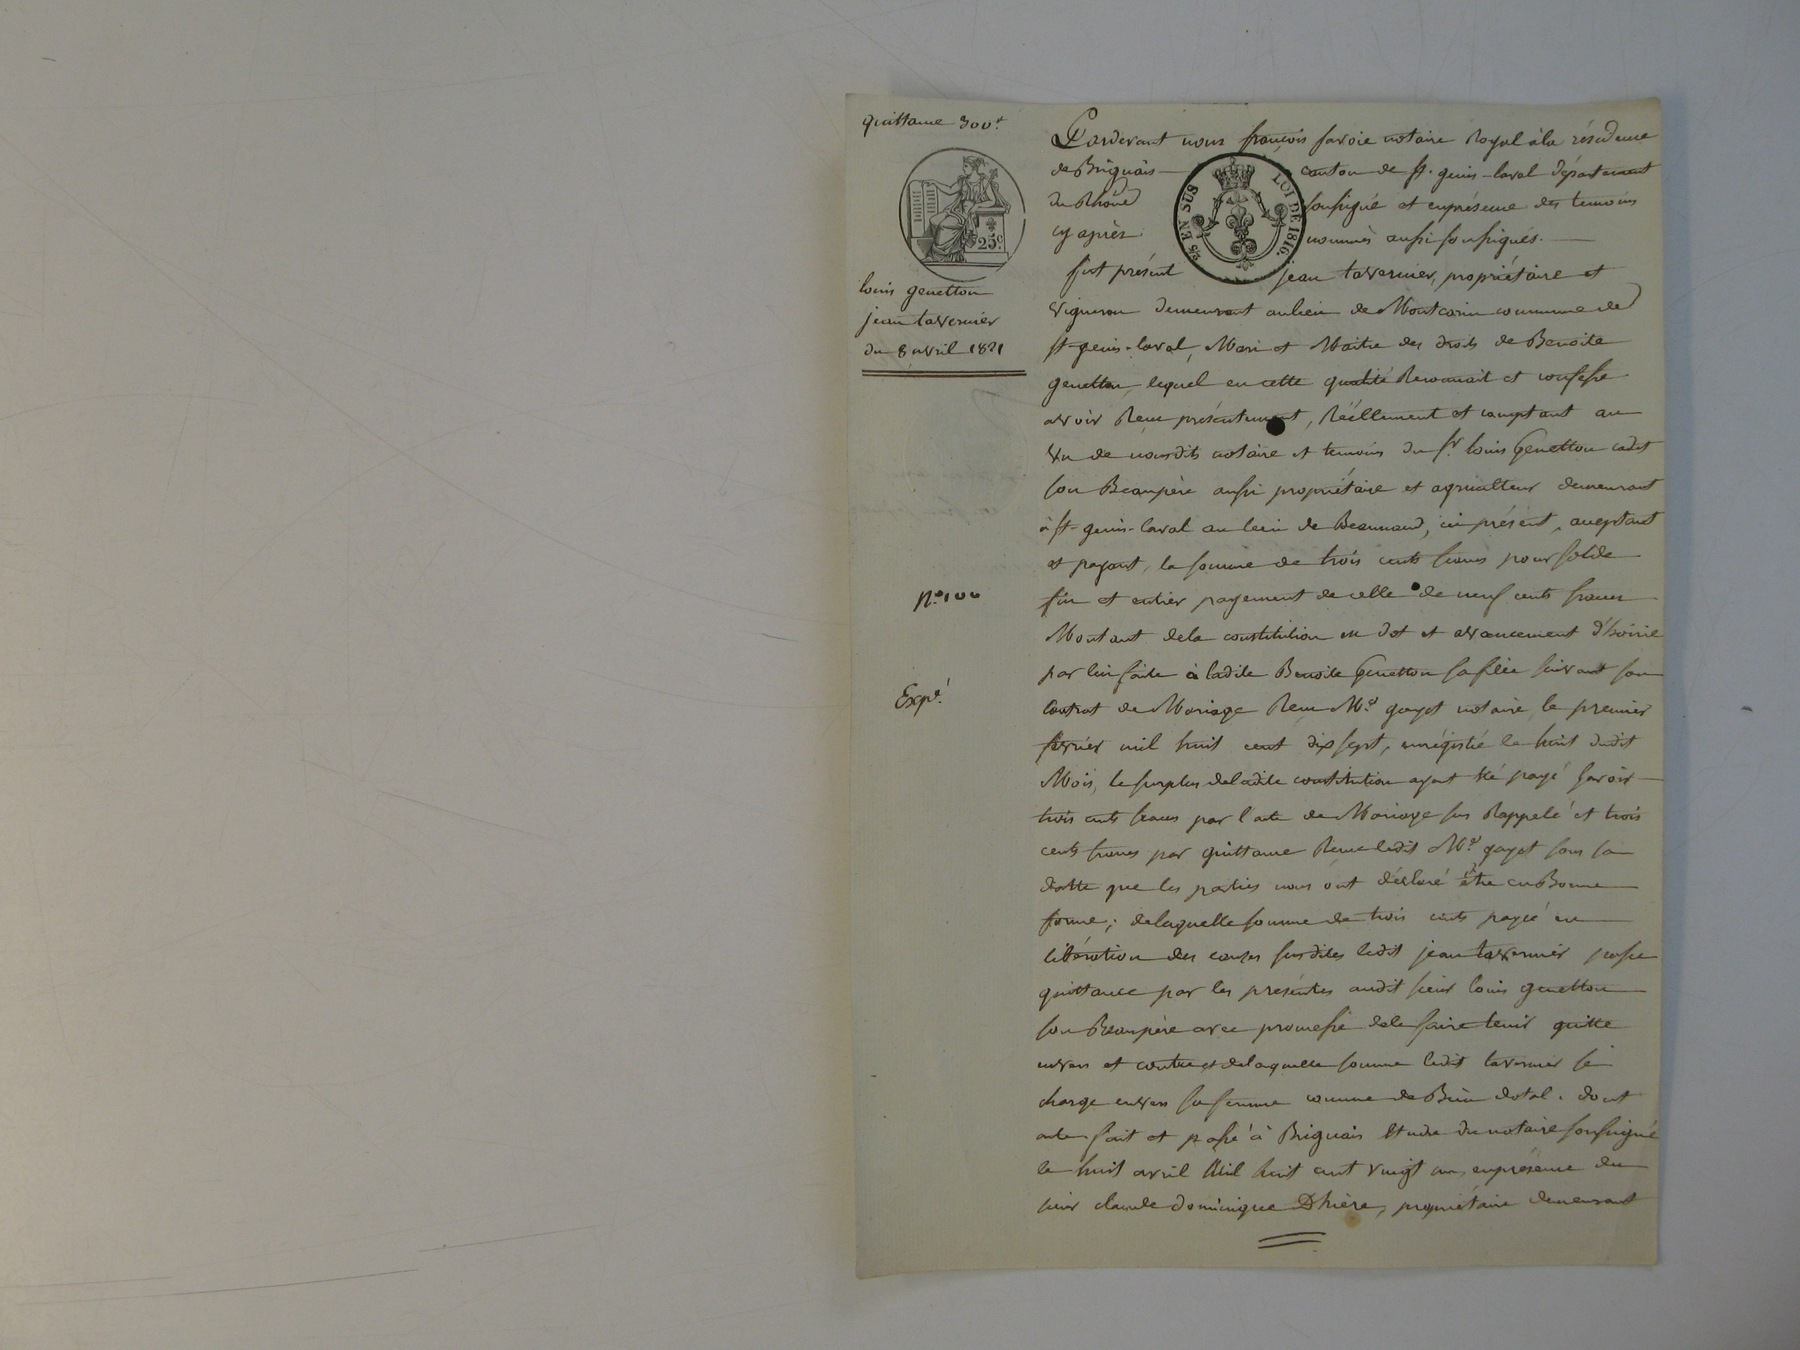 quittance 300.ᶠ
25.ᶜ
louis genetton
jean tavernier
du 8 avril 1821
n.º 100
Expé.
2/5 EN SUS LOI DE 1816.
Pardevant nous françois favoie notaire Royal à la résidence
de Briguais canton de st. genis-laval département
du Rhône soussigné et enprésence des temoins
cy après nommés aussi soussignés.
fut présent jean tavernier, propriétaire et
vigneron demeurant aulieu de Montcorin commune de
st-genis-laval, Mari et Maitre des droits de Benoite
genetton, lequel en cette qualité Reconnait et confesse
avoir Recu présentement, Réellement et comptant au
vu de nousdits notaire et temoins du sr. louis Genetton cadet
son Beaupère aussi propriétaire et agriculteur demeurant
à st-genis-laval au lieu de Beaunand, ici présent, aceptant
et payant, la somme de trois cents francs pour solde
fin et entier payement de celle de neuf cents francs
Montant dela constitution en dot et avancement d'hoirie
par lui faite à ladite Benoite Genetton sa fille suivant son
contrat de Mariage Recu Me. gayet notaire, le premier
février mil huit cent dix sept, enrégistré le huit dudit
Mois, le surplus deladite constitution ayant été payé savoir
trois cents francs par l'acte de Mariage sus Rappelé et trois
cents francs par quittance Recue ledit Me. gayet sous sa
datte que les parties nous ont déclaré être en Bonne
forme; delaquelle somme de trois cents payée en
libération des causes susdites ledit jean tavernier passe
quittance par les présentes audit sieur louis genetton
son Beaupère avec promesse dele faire tenir quitte
envers et contre et delaquelle somme ledit tavernier se
charge envers sa femme comme de Bien dotal. dont
acte fait et passé à Briguais Etude du notaire soussigné
le huit avril Mil huit cent vingt un, enprésence du
sieur claude dominique Dhière, propriétaire demeurant